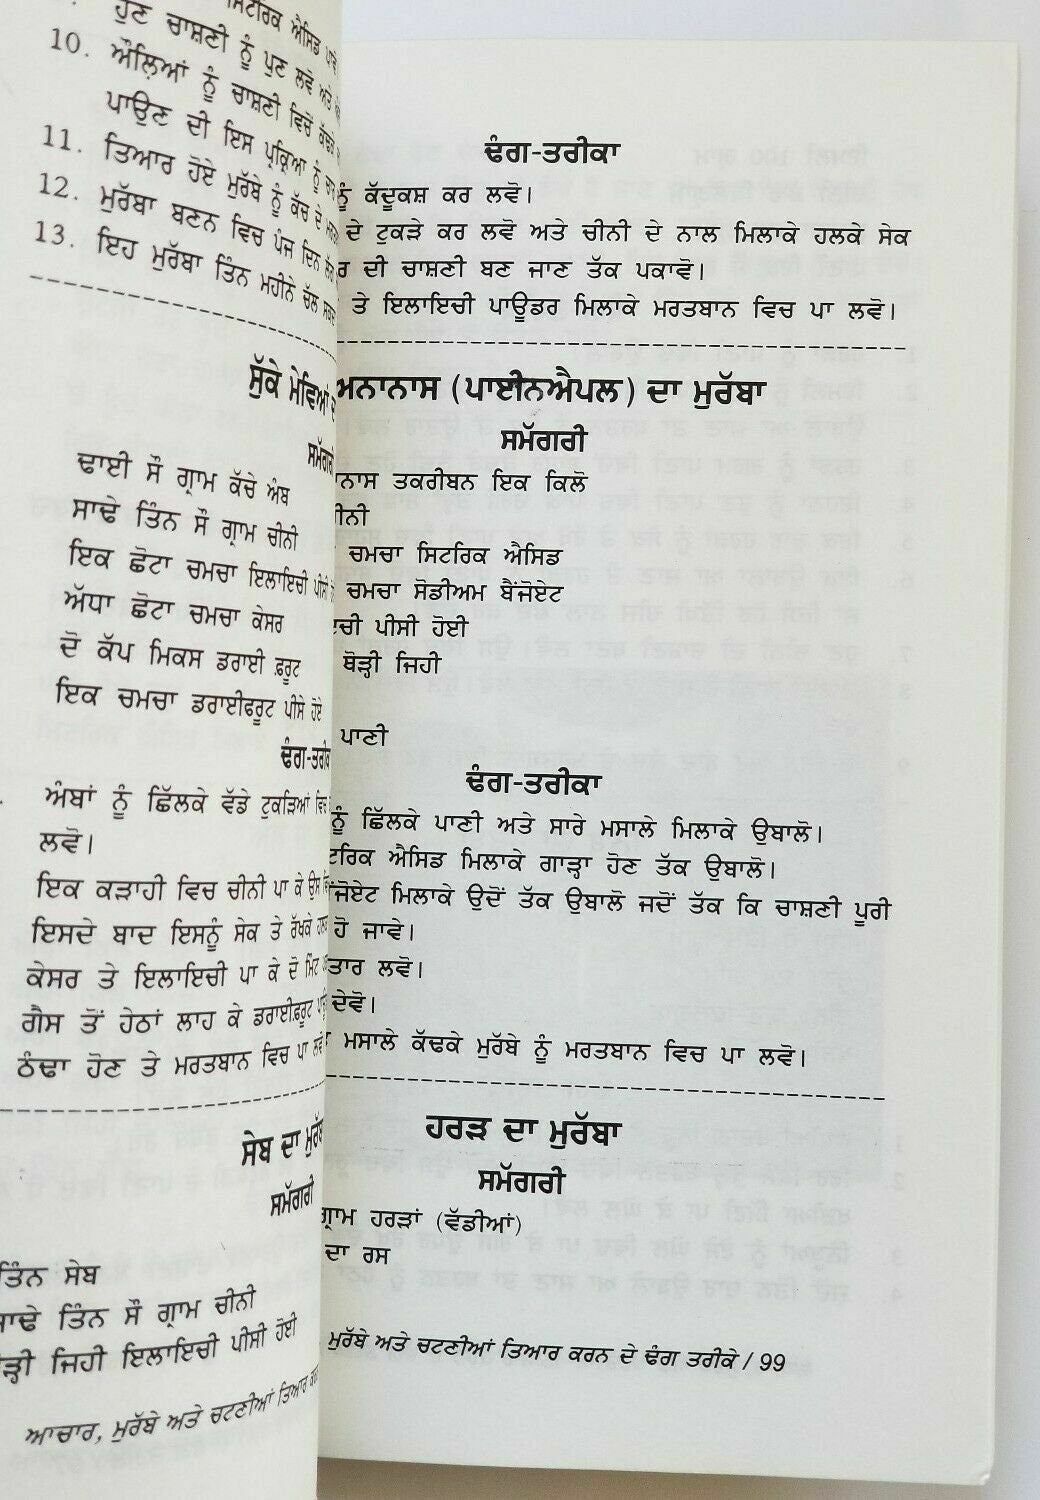 ਹੁਣ ਚਾਸ਼ਣੀ ਨੂੰ ਪੁਣ ਲਵੋ ਅਤੇ
10. ਔਲਿਆਂ ਨੂੰ ਚਾਸ਼ਣੀ ਵਿਚੋਂ ਕੱਢਕੇ
ਪਾਉਣ ਦੀ ਇਸ ਪ੍ਰਕ੍ਰਿਆ ਨੂੰ ਚਾਰ
11. ਤਿਆਰ ਹੋਏ ਮੁਰੱਬੇ ਨੂੰ ਕੱਚ ਦੇ
12. ਮੁਰੱਬਾ ਬਣਨ ਵਿਚ ਪੰਜ ਦਿਨ
13. ਇਹ ਮੁਰੱਬਾ ਤਿੰਨ ਮਹੀਨੇ ਚੱਲ
ਸੁੱਕੇ ਮੇਵਿਆਂ
ਸਮੱਗਰੀ
ਢਾਈ ਸੌ ਗ੍ਰਾਮ ਕੱਚੇ ਅੰਬ
ਸਾਢੇ ਤਿੰਨ ਸੌ ਗ੍ਰਾਮ ਚੀਨੀ
ਇਕ ਛੋਟਾ ਚਮਚਾ ਇਲਾਇਚੀ ਪੀਸੀ
ਅੱਧਾ ਛੋਟਾ ਚਮਚਾ ਕੇਸਰ
ਦੋ ਕੱਪ ਮਿਕਸ ਡਰਾਈ ਫ਼ਰੂਟ
ਇਕ ਚਮਚਾ ਡਰਾਈਫਰੂਟ ਪੀਸੇ ਹੋਏ
ਢੰਗ-ਤਰੀਕਾ
ਅੰਬਾਂ ਨੂੰ ਛਿੱਲਕੇ ਵੱਡੇ ਟੁਕੜਿਆਂ ਵਿਚ
ਲਵੋ।
ਇਕ ਕੜਾਹੀ ਵਿਚ ਚੀਨੀ ਪਾ ਕੇ ਉਸ
ਇਸਦੇ ਬਾਦ ਇਸਨੂੰ ਸੇਕ ਤੇ ਰੱਖਕੇ
ਕੇਸਰ ਤੇ ਇਲਾਇਚੀ ਪਾ ਕੇ ਦੋ ਮਿੰਟ
ਗੈਸ ਤੋਂ ਹੇਠਾਂ ਲਾਹ ਕੇ ਡਰਾਈਫ਼ਰੂਟ
ਠੰਢਾ ਹੋਣ ਤੇ ਮਰਤਬਾਨ ਵਿਚ ਪਾ
ਸੇਬ ਦਾ ਮੁਰੱਬਾ
ਸਮੱਗਰੀ
ਤਿੰਨ ਸੇਬ
ਸਾਢੇ ਤਿੰਨ ਸੌ ਗ੍ਰਾਮ ਚੀਨੀ
ਜਿਹੀ ਇਲਾਇਚੀ ਪੀਸੀ ਹੋਈ
ਆਚਾਰ, ਮੁਰੱਬੇ ਅਤੇ ਚਟਣੀਆਂ ਤਿਆਰ
ਢੰਗ-ਤਰੀਕਾ
ਨੂੰ ਕੱਦੂਕਸ਼ ਕਰ ਲਵੋ।
ਦੇ ਟੁਕੜੇ ਕਰ ਲਵੋ ਅਤੇ ਚੀਨੀ ਦੇ ਨਾਲ ਮਿਲਾਕੇ ਹਲਕੇ ਸੇਕ
ਦੀ ਚਾਸ਼ਣੀ ਬਣ ਜਾਣ ਤੱਕ ਪਕਾਵੋ।
ਤੇ ਇਲਾਇਚੀ ਪਾਊਡਰ ਮਿਲਾਕੇ ਮਰਤਬਾਨ ਵਿਚ ਪਾ ਲਵੋ।
ਅਨਾਨਾਸ (ਪਾਈਨਐਪਲ) ਦਾ ਮੁਰੱਬਾ
ਸਮੱਗਰੀ
ਨਾਨਾਸ ਤਕਰੀਬਨ ਇਕ ਕਿਲੋ
ਚੀਨੀ
ਚਮਚਾ ਸਿਟਰਿਕ ਐਸਿਡ
ਚਮਚਾ ਸੋਡੀਅਮ ਬੈਂਜੋਏਟ
ਇਚੀ ਪੀਸੀ ਹੋਈ
ਥੋੜ੍ਹੀ ਜਿਹੀ
ਪਾਣੀ
ਢੰਗ-ਤਰੀਕਾ
ਨੂੰ ਛਿੱਲਕੇ ਪਾਣੀ ਅਤੇ ਸਾਰੇ ਮਸਾਲੇ ਮਿਲਾਕੇ ਉਬਾਲੋ।
ਟਰਿਕ ਐਸਿਡ ਮਿਲਾਕੇ ਗਾੜ੍ਹਾ ਹੋਣ ਤੱਕ ਉਬਾਲੋ।
ਜੋਏਟ ਮਿਲਾਕੇ ਉਦੋਂ ਤੱਕ ਉਬਾਲੋ ਜਦੋਂ ਤੱਕ ਕਿ ਚਾਸ਼ਣੀ ਪੂਰੀ
ਹੋ ਜਾਵੇ।
ਤਾਰ ਲਵੋ।
ਦੇਵੋ।
ਮਸਾਲੇ ਕੱਢਕੇ ਮੁਰੱਬੇ ਨੂੰ ਮਰਤਬਾਨ ਵਿਚ ਪਾ ਲਵੋ।
ਹਰੜ ਦਾ ਮੁਰੱਬਾ
ਸਮੱਗਰੀ
ਗ੍ਰਾਮ ਹਰੜਾਂ (ਵੱਡੀਆਂ)
ਦਾ ਰਸ
ਮੁਰੱਬੇ ਅਤੇ ਚਟਣੀਆਂ ਤਿਆਰ ਕਰਨ ਦੇ ਢੰਗ ਤਰੀਕੇ / 99